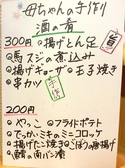 母ちゃんの手作り
酒の肴
300円
揚げとん足
馬スジの煮込み
揚げギョーザ
玉子焼き
串カツ
手作り
200円
やっこ
フライドポテト
でっかいキモのミニコロッケ
揚げたこ焼き
ごぼうの唐揚げ
鱈の南バン漬